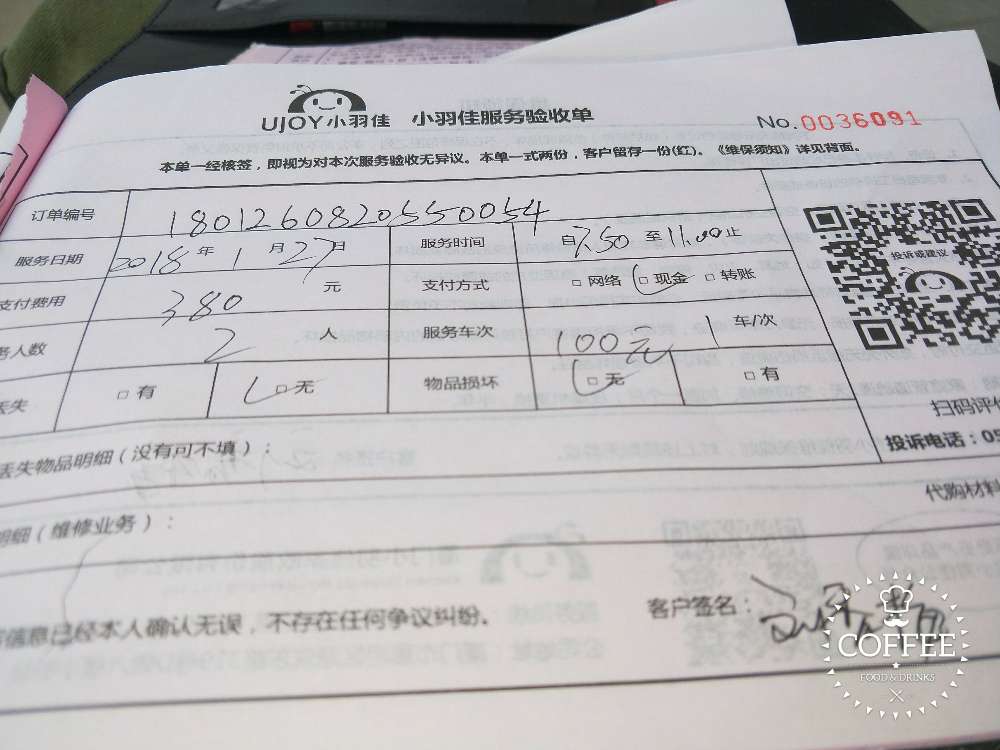 UJOY小羽佳 小羽佳服务验收单 No.0036091
本单一经核签，即视为对本次服务验收无异议。本单一式两份，客户留存一份(红)。《维保须知》详见背面。
订单编号 18012608205550054
服务日期 2018年1月27日 服务时间 自7.50至11.00止
支付费用 380元 支付方式 □网络 □现金 □转账
务人数 2人 服务车次 100元 1车/次
丢失 □有 □无 物品损坏 □无 □有
投诉或建议
扫码评价
投诉电话：05
丢失物品明细（没有可不填）：
代购材料
明细（维修业务）：
信息已经本人确认无误，不存在任何争议纠纷。 客户签名：
COFFEE
FOOD & DRINKS